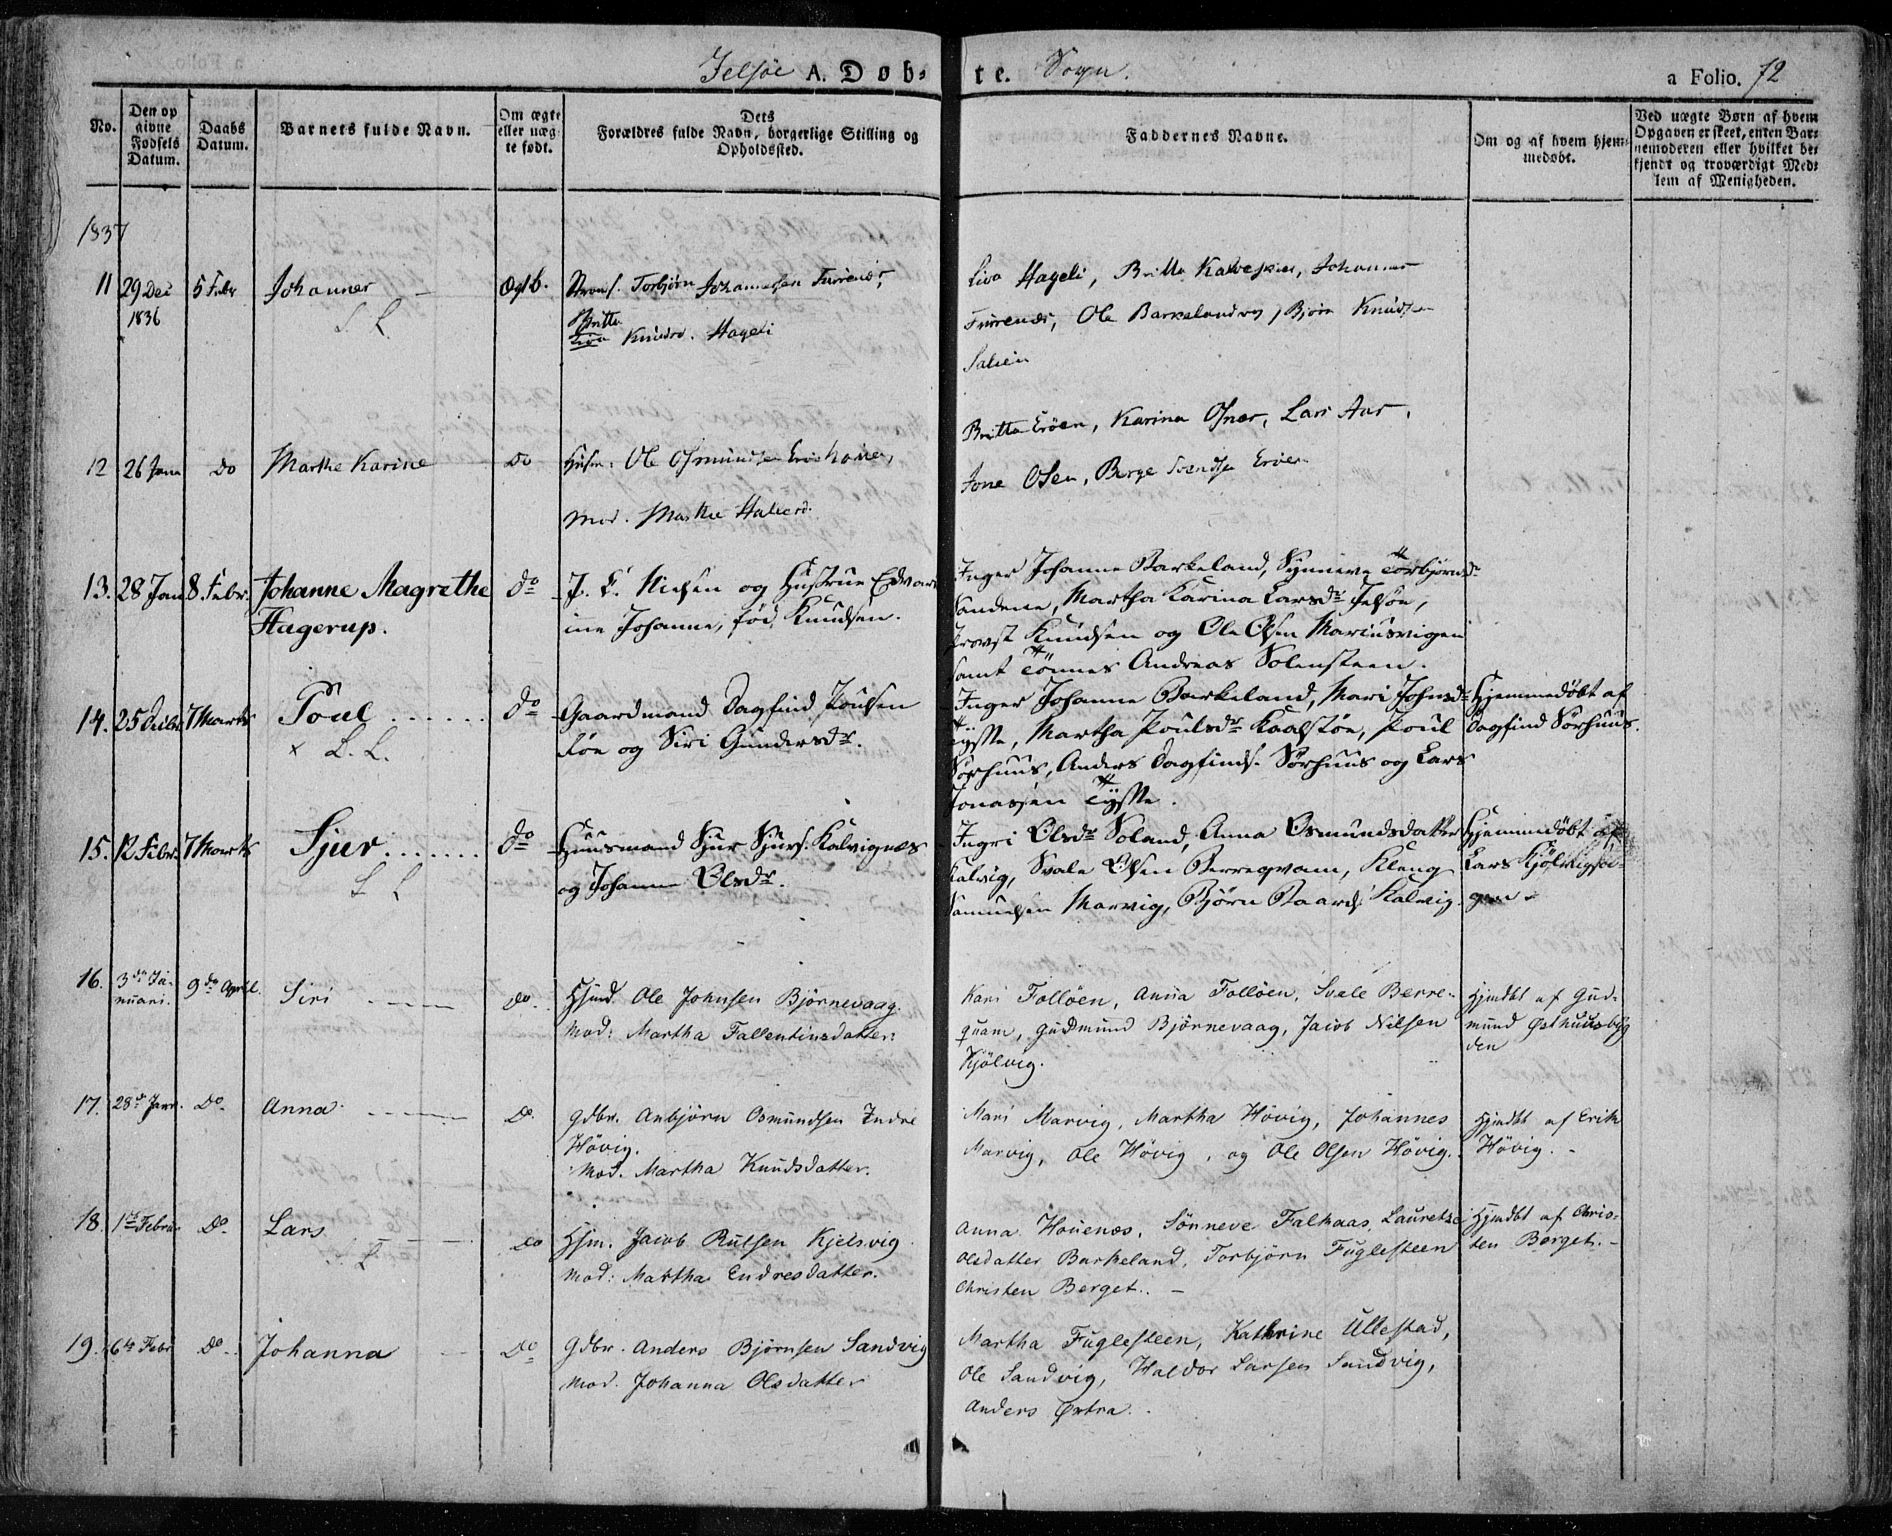 Jelsøe A. Døb- te. Sogn. a Folio. 72
No.
Den op
givne
Fødsels
Datum.
Daabs
Datum.
Barnets fulde Navn.
Om ægte
eller uæg-
te født.
Dets
Forældres fulde Navn, borgerlige Stilling og
Opholdssted.
Faddernes Navne.
Om og af hvem hjem-
medøbt.
Ved uægte Børn af hvem
Opgaven er skeet, enten Bar-
nemoderen eller hvilket be-
kjendt og troværdigt Med-
lem af Menigheden.
1837
11 29 Dec 5 Febr Johannes Ægtb. Torbjørn Johannesen Furenæs,
1836 S L
Britte
Knudsd. Hageli
Liva Hageli, Britte Johannes
Furenæs, Ole Barkeland og Bjørn Knudsen
12 26 Janu do Marthe Karine do Husm: Ole Osmundsen
Mod. Marthe
Britte Erøen, Karina Osnes, Lars Aas,
Jone Osen, Berge Svendsen Erøen
13. 28 Jan 8 Febr. Johanne Magrethe do J. F. Nielsen og Hustrue Edvar-
Hagerup. ine Johanne, fød Knudsen.
Inger Johanne Barkeland, Synneve Torbjørnsdr
Sandene, Martha Karina Larsdr Jelsøe,
Provst Knudsen og Ole Olsen Mariusvigen
samt Tönnes Andreas Solensteen.
14. 25 Febr. 7 Marts Poul do Gaardmand Dagfind Poulsen
x L. L. Røe og Siri Gundersdr.
Inger Johanne Barkeland, Mari Johnsdr
Tysse, Martha Poulsdr Kaalstøe, Poul
Sørhuus, Anders Dagfinds. Sørhuus og Lars
Jonassen Tysse.
Hjemmedøbt af
Dagfind Sørhuus.
15. 12 Febr. 7 Marts Sjur do Huusmand Sjur Sjurs. Kalvignæs
L L og Johanne Olsdr.
Ingri Olsdr Soland, Anna Osmundsdatter
Kalvig, Svale Olsen Berreqvam, Kleng
Samuelsen Marvig, Björn Baards. Kalvig.
Hjemmedöbt af
Lars Kjölvigsvi-
gen
16. 3die Ja- 9de April. Siri do. Hsmd. Ole Johnsen Bjørnevaag.
nuari. Mod: Martha Fallentinsdatter.
Kari Folløen, Anna Folløen, Svale Berre-
quam, Gudmund Bjørnevaag, Jacob Nilsen
Kjølvig.
Hjmdbt af Gud-
mund Østhuusbyg
den
17. 28de Janr. Do. Anna. Do Gdbr. Anbjørn Osmundsen Indre
Høvig.
Mod. Martha Knudsdatter.
Mari Marvig, Martha Høvig, Johannes
Marvig, Ole Høvig, og Ole Olsen Høvig.
Hjmdbt af Erik
Høvig.
18. 1ste Februar Do. Lars Do Hsm. Jacob Rulsen Kjelsvig.
L Mod: Martha Endresdatter.
Anna Houenæs, Sönneve Falkaas, Lauretza
Olsdatter Barkeland, Torbjörn Fuglesteen
Christen Berget.
Hjmdbt af Chris-
ten Berget.
19. 6te Febr Do. Johanna Do Gdbr. Anders Bjørnsen Sandvig
Mod. Johanna Olsdatter
Martha Fuglesteen, Kathrine Ullestad,
Ole Sandvig, Haldor Larsen Sandvig,
Anders Østra.